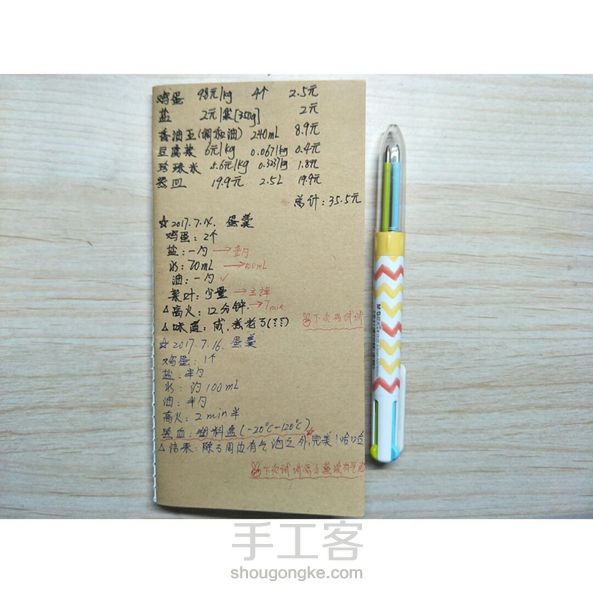 鸡蛋 9.8元/kg 4个 2.5元
盐 2元/袋[350g] 2元
香油王(调和油) 240mL 8.9元
豆腐浆 6元/kg 0.067/kg 0.4元
珍珠米 5.6元/kg 0.323/kg 1.8元
器皿 19.9元 2.5L 19.9元
总计:35.5元
☆2017.7.14. 蛋羹
鸡蛋:2个
盐:一勺 →半勺
水:70mL →100mL
油:一勺 ✓
菜叶:少量
△高火:12分钟 →7min
△味道:咸,
下次再试试
☆2017.7.16. 蛋羹
鸡蛋:1个
盐:半勺
水:约100mL
油:半勺
高火:2min半
器皿:塑料盒(-20℃-120℃)
△结果:除了周边有气泡之外,完美!
下次试试
手工客
shougongke.com